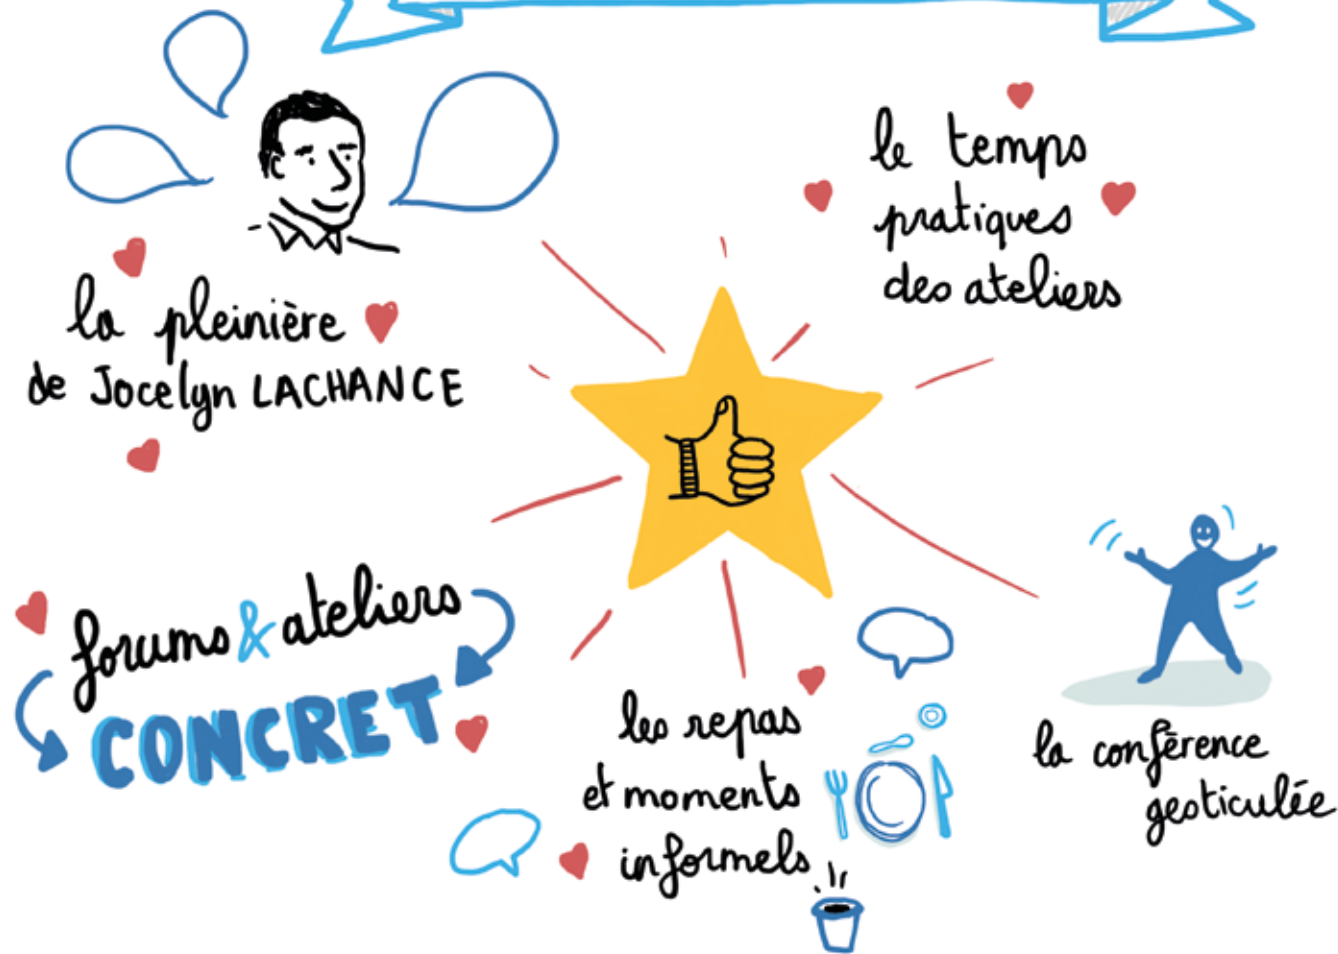 la pleinière
de Jocelyn LACHANCE
le temps
pratiques
des ateliers
forums & ateliers
CONCRET
les repas
et moments
informels
la conférence
gesticulée